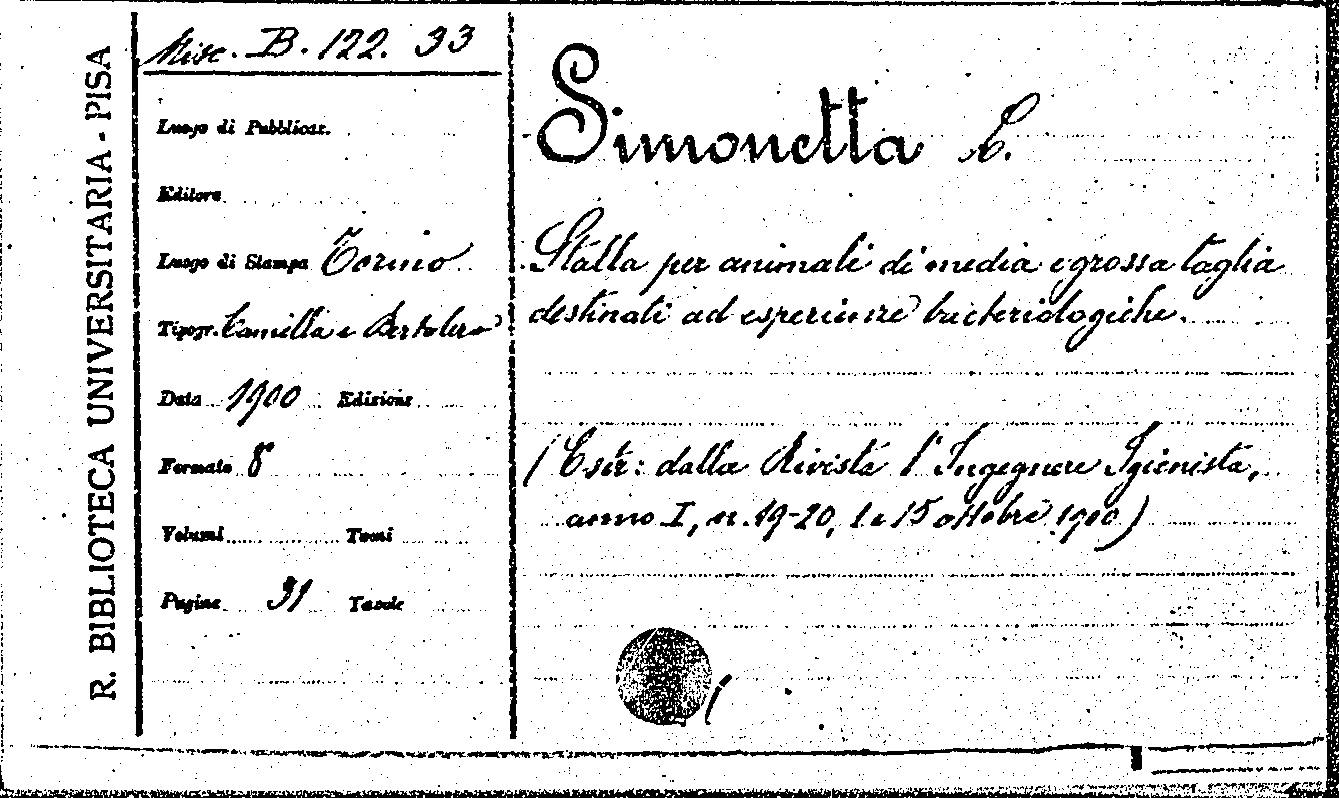 R. BIBLIOTECA UNIVERSITARIA - PISA
Misc. B. 122. 33
Luogo di Pubblicaz.
Editore
Luogo di Stampa Torino
Tipogr. Camilla e Bertolero
Data 1900 Edizione
Formato 8
Volumi Tomi
Pagine 31 Tavole
Simonetta
Stalla per animali di media e grossa taglia
destinati ad esperienze bacteriologiche.
(Estr: dalla Rivista l'Ingegnere Igienista,
anno I, n. 19-20, 1 e 15 ottobre 1900)